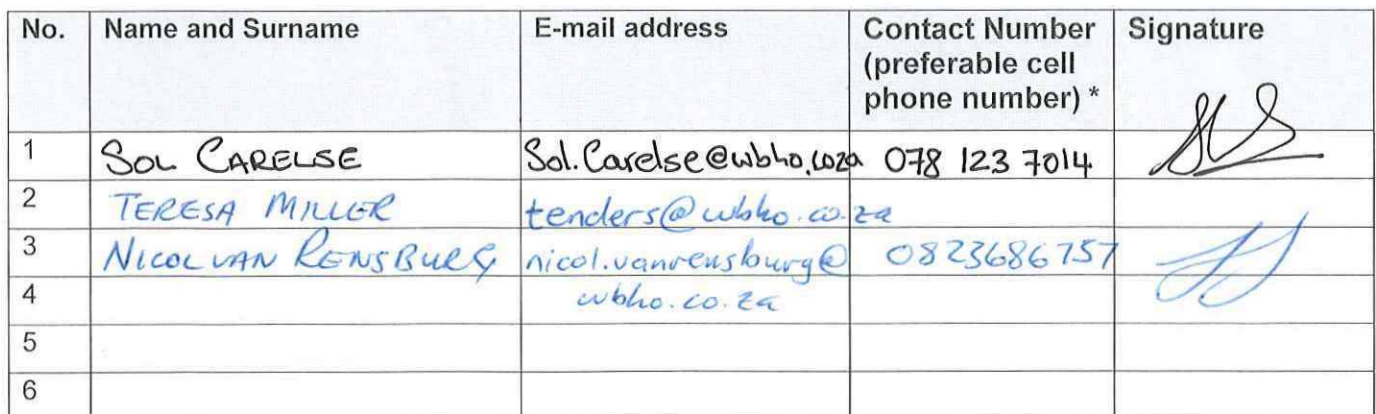 No. Name and Surname E-mail address Contact Number (preferable cell phone number) * Signature
1 SOL CARELSE Sol.Carelse@wbho.co.za 078 123 7014
2 TERESA MILLER tenders@wbho.co.za
3 NICOL VAN RENSBURG nicol.vanrensburg@ 0823686757
4 wbho.co.za
5
6